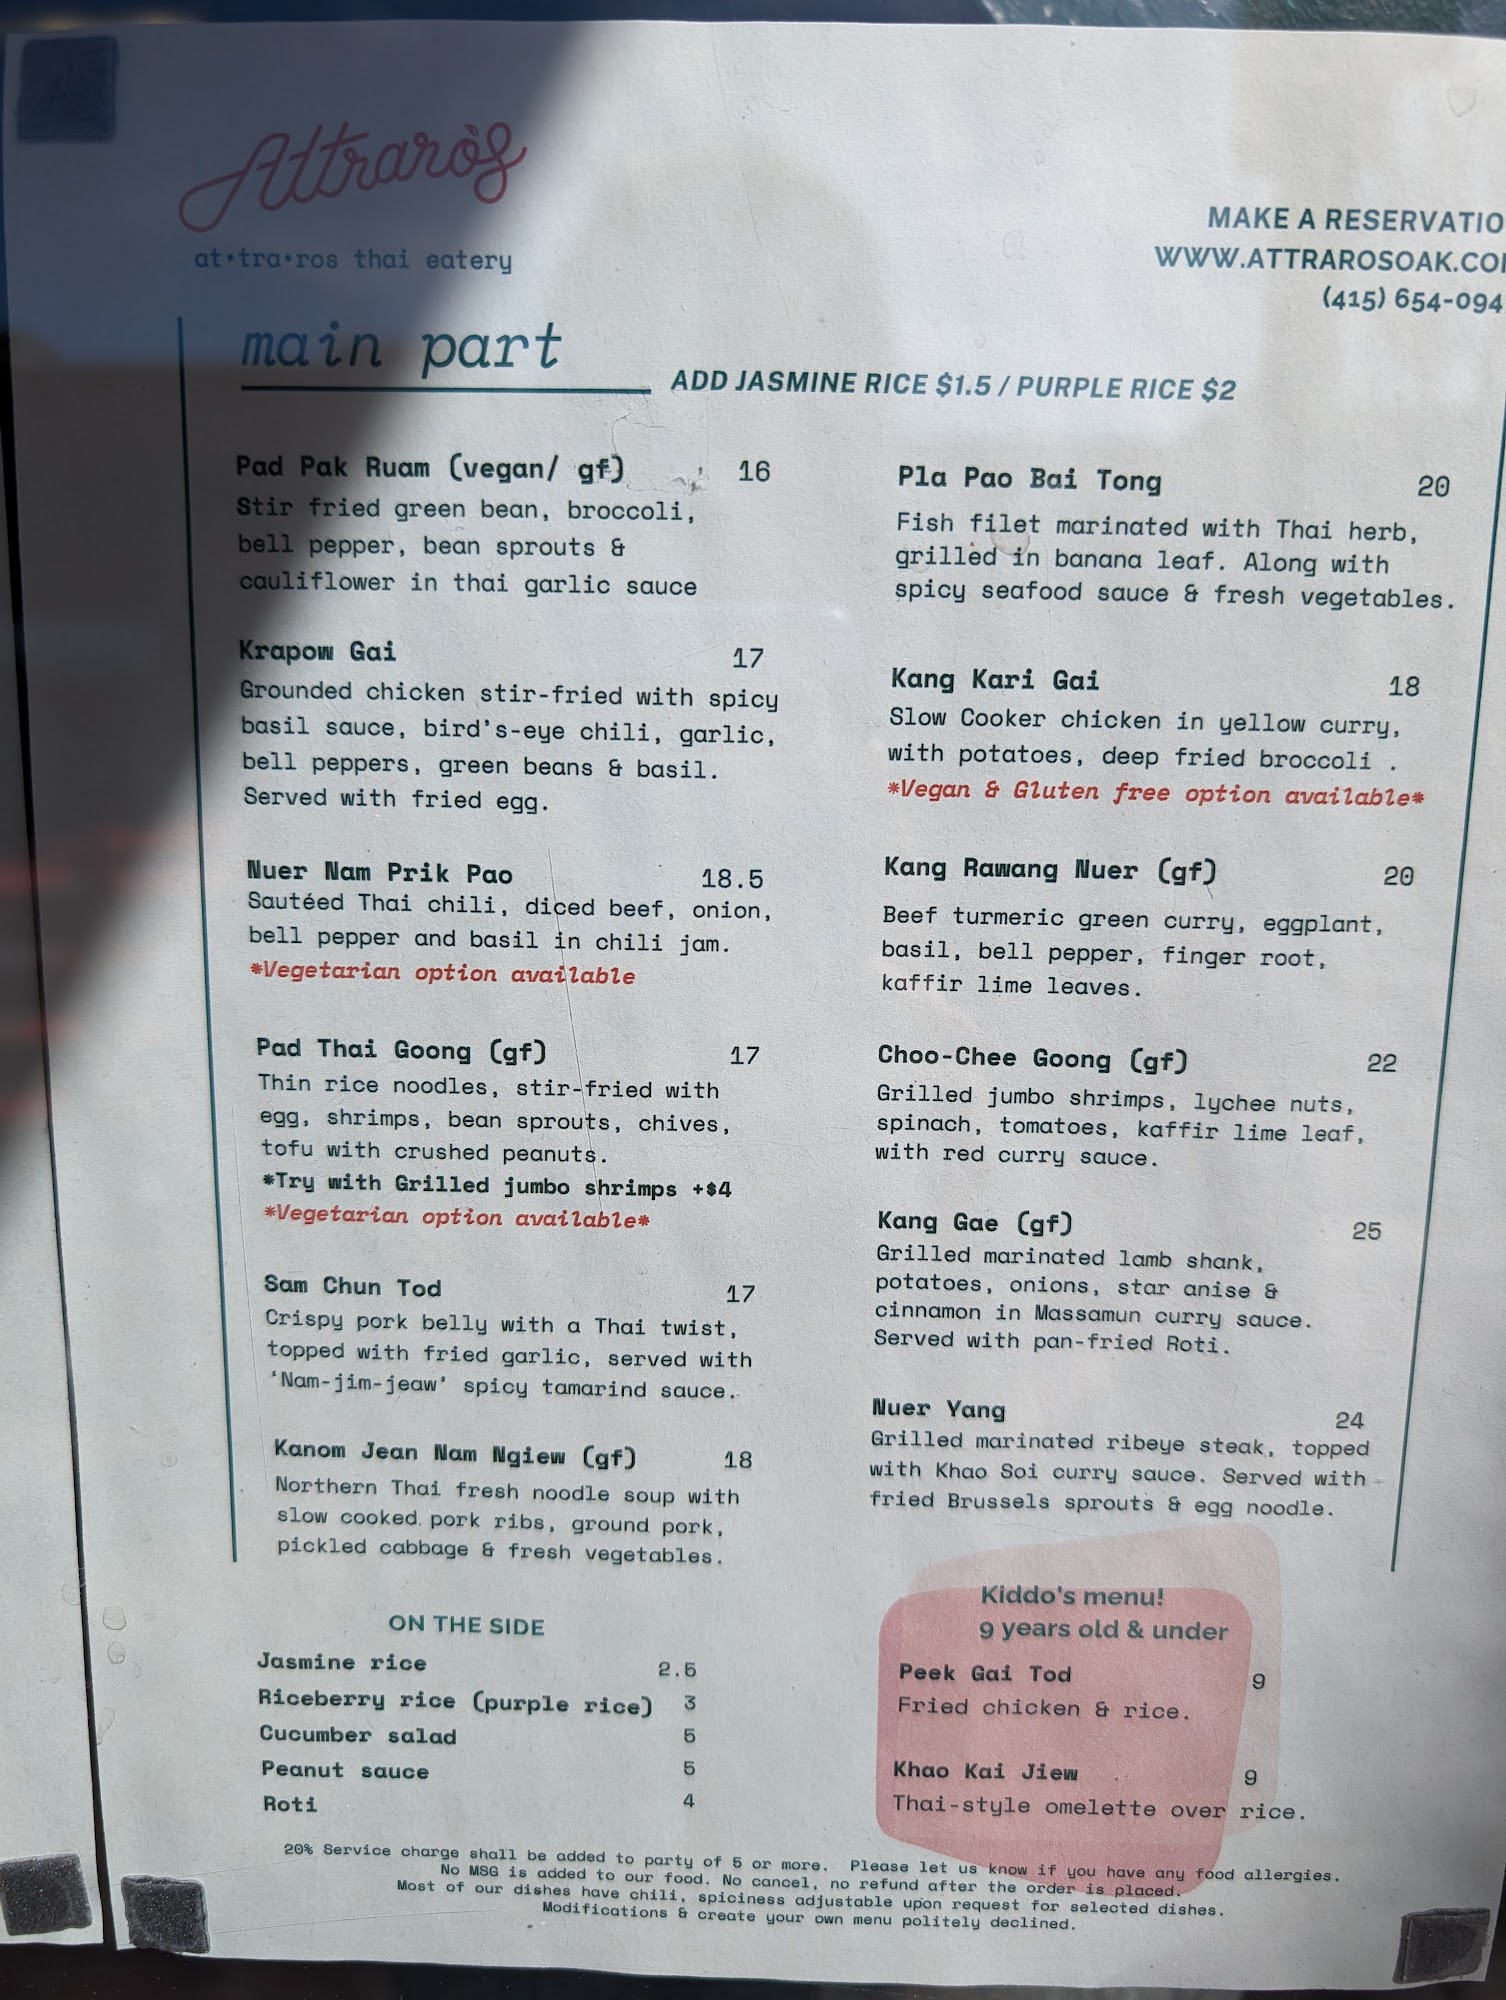 Attraròs
at•tra•ros thai eatery
MAKE A RESERVATIO
WWW.ATTRAROSOAK.CO
(415) 654-094
main part
ADD JASMINE RICE $1.5 / PURPLE RICE $2
Pad Pak Ruam (vegan/ gf) 16
Stir fried green bean, broccoli,
bell pepper, bean sprouts &
cauliflower in thai garlic sauce
Krapow Gai 17
Grounded chicken stir-fried with spicy
basil sauce, bird's-eye chili, garlic,
bell peppers, green beans & basil.
Served with fried egg.
Nuer Nam Prik Pao 18.5
Sautéed Thai chili, diced beef, onion,
bell pepper and basil in chili jam.
*Vegetarian option available
Pad Thai Goong (gf) 17
Thin rice noodles, stir-fried with
egg, shrimps, bean sprouts, chives,
tofu with crushed peanuts.
*Try with Grilled jumbo shrimps +$4
*Vegetarian option available*
Sam Chun Tod 17
Crispy pork belly with a Thai twist,
topped with fried garlic, served with
'Nam-jim-jeaw' spicy tamarind sauce.
Kanom Jean Nam Ngiew (gf) 18
Northern Thai fresh noodle soup with
slow cooked pork ribs, ground pork,
pickled cabbage & fresh vegetables.
Pla Pao Bai Tong 20
Fish filet marinated with Thai herb,
grilled in banana leaf. Along with
spicy seafood sauce & fresh vegetables.
Kang Kari Gai 18
Slow Cooker chicken in yellow curry,
with potatoes, deep fried broccoli .
*Vegan & Gluten free option available*
Kang Rawang Nuer (gf) 20
Beef turmeric green curry, eggplant,
basil, bell pepper, finger root,
kaffir lime leaves.
Choo-Chee Goong (gf) 22
Grilled jumbo shrimps, lychee nuts,
spinach, tomatoes, kaffir lime leaf,
with red curry sauce.
Kang Gae (gf) 25
Grilled marinated lamb shank,
potatoes, onions, star anise &
cinnamon in Massamun curry sauce.
Served with pan-fried Roti.
Nuer Yang 24
Grilled marinated ribeye steak, topped
with Khao Soi curry sauce. Served with
fried Brussels sprouts & egg noodle.
ON THE SIDE
Jasmine rice 2.5
Riceberry rice (purple rice) 3
Cucumber salad 5
Peanut sauce 5
Roti 4
Kiddo's menu!
9 years old & under
Peek Gai Tod 9
Fried chicken & rice.
Khao Kai Jiew 9
Thai-style omelette over rice.
20% Service charge shall be added to party of 5 or more. Please let us know if you have any food allergies.
No MSG is added to our food. No cancel, no refund after the order is placed.
Most of our dishes have chili, spiciness adjustable upon request for selected dishes.
Modifications & create your own menu politely declined.